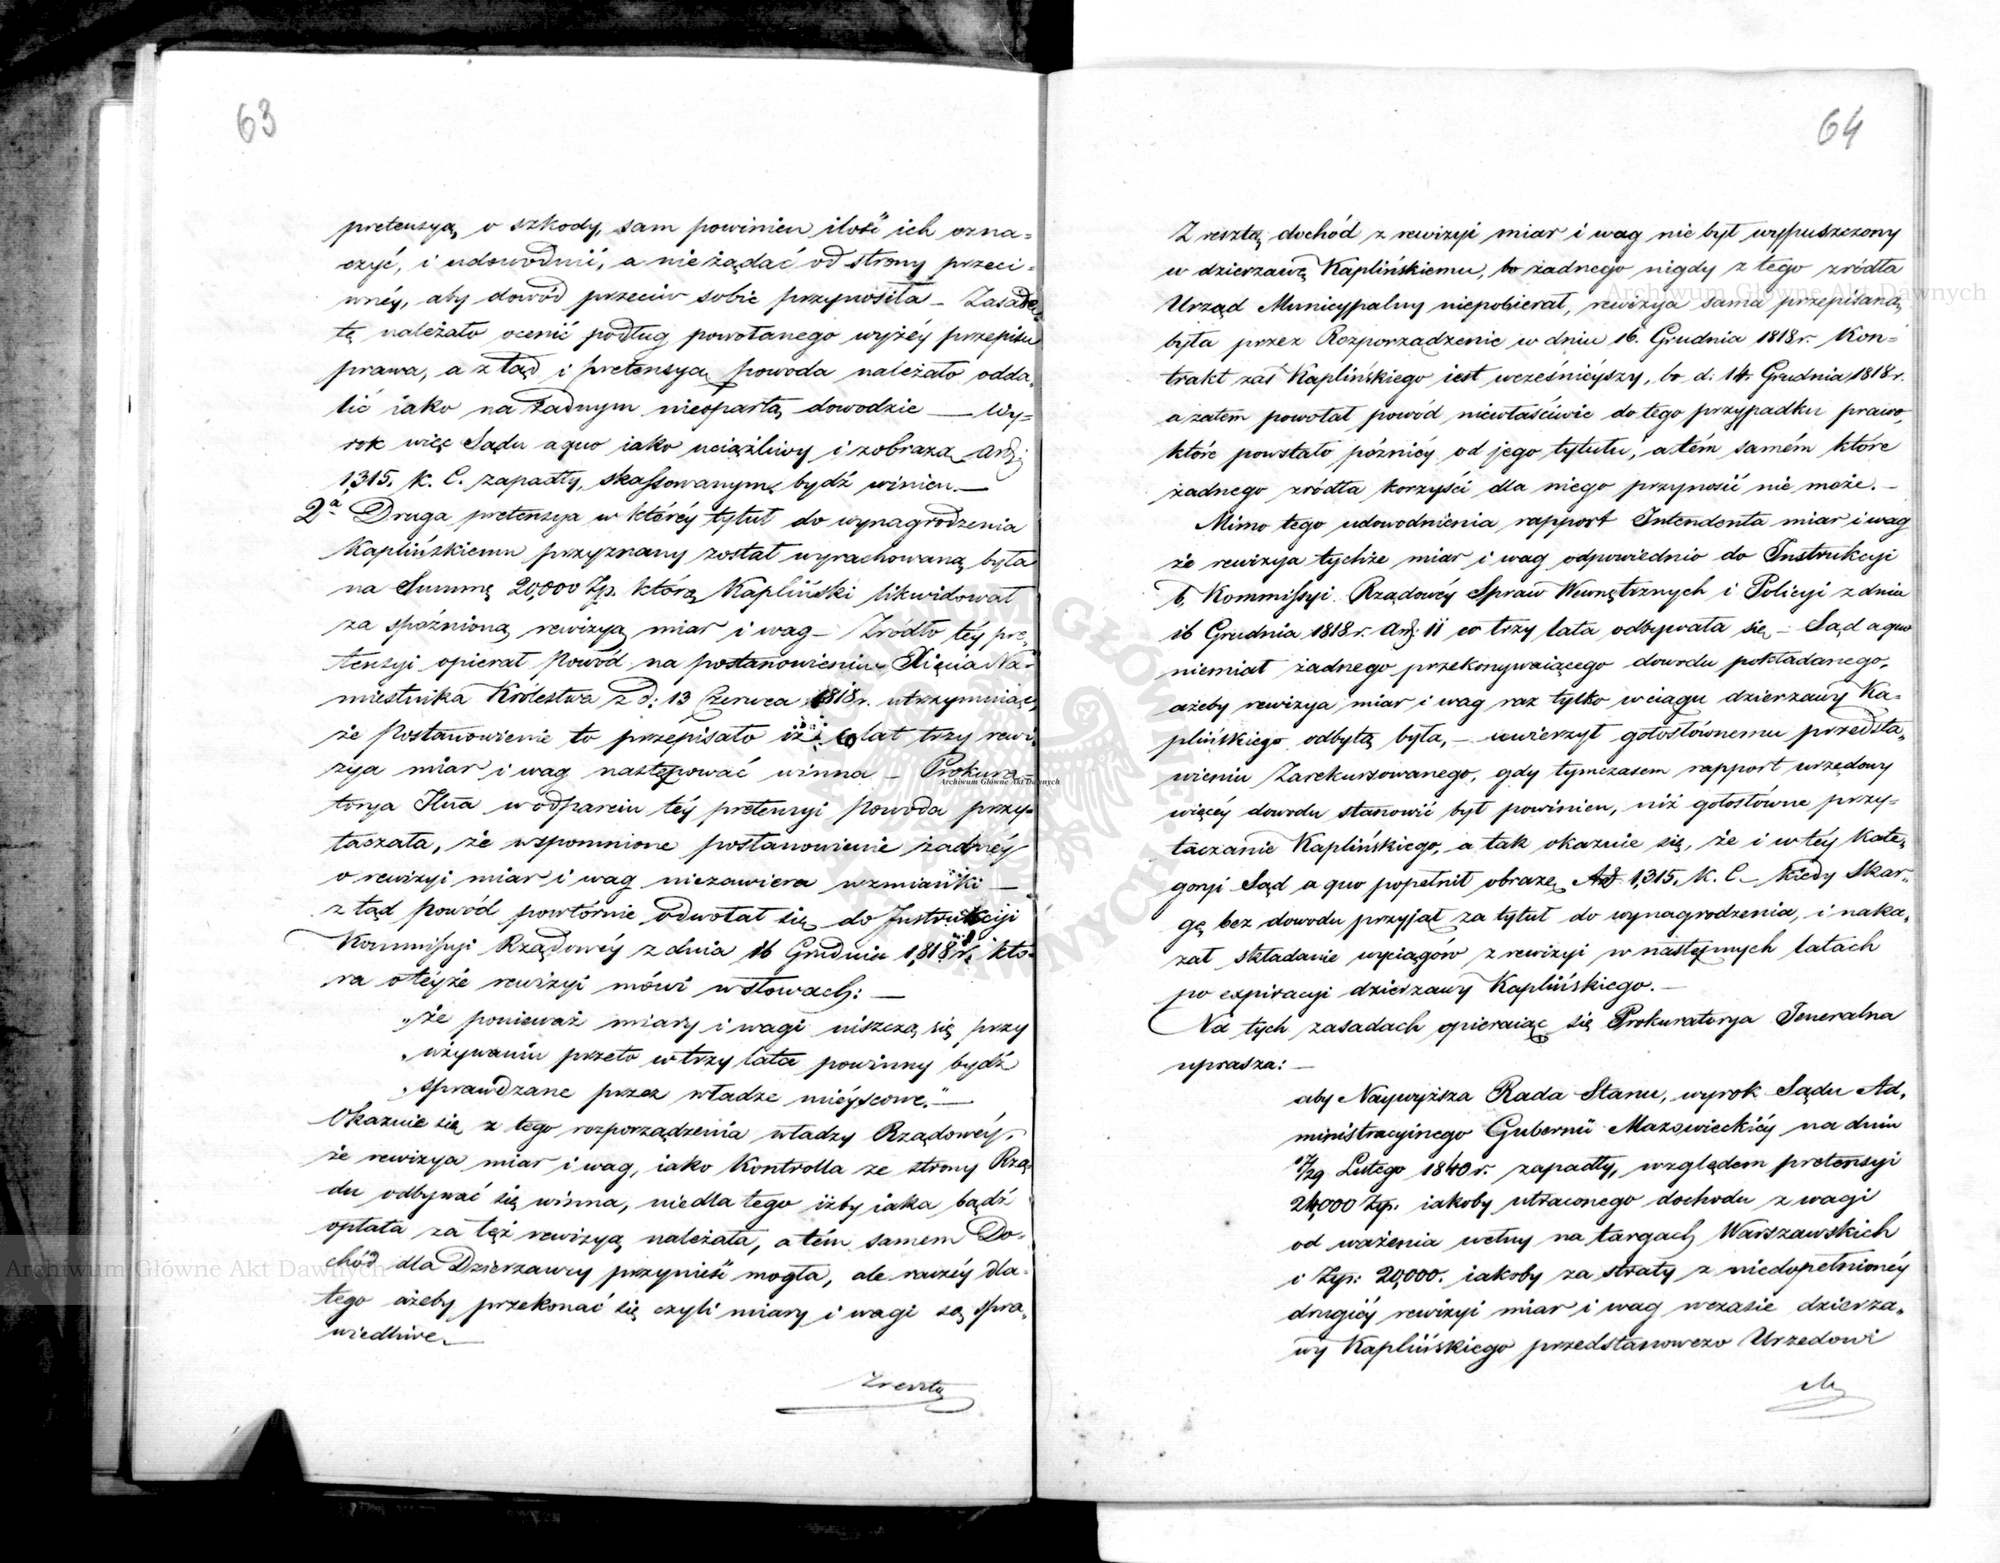 63
pretensyą o szkody, sam powinien ilość ich ozna=
czyć, i udowodnić, a nie żądać od strony przeci=
wnéy, aby dowód przeciw sobie przynosiła – Zasadę
tę należało ocenić podług powołanego wyżéy przepisu
prawa, a z tąd i pretensya powoda należało odda=
lić iako na żadnym nieopartą dowodzie — Wy=
rok więc Sądu a quo iako uciążliwy i z obrazą Art:
1315. K. C. zapadły, skassowanym bydź winien. —
2a Druga pretensya w któréy tytuł do wynagrodzenia
Kaplińskiemu przyznany został wyrachowaną była
na Summę 20,000 Zp. którą Kapliński likwidował
za spóźnioną rewizyą miar i wag – Zródło téy pre=
tensyi opierał Powód na postanowieniu Xięcia Na=
miestnika Królestwa z d: 13 Czerwca 1818 r. utrzymuiąc,
że Postanowienie to przepisało iż 6 lat trzy rewi=
zya miar i wag następować winna – Prokura=
torya Jlna w odparciu téy pretensyi Powoda przy=
taczała, że wspomnione postanowienie żadnéy
o rewizyi miar i wag niezawiera wzmianki —
z tąd Powód powtórnie odwołał się do Instrukcyi
Kommissyi Rządowéy z dnia 16 Grudnia 1818 r. któ=
ra o téyże rewizyi mówi w słowach: —
„że ponieważ miary i wagi niszczą się przy
„używaniu przeto w trzy lata powinny bydź
„sprawdzane przez władze miéyscowe." —
Okazuie się z tego rozporządzenia władzy Rządowéy,
że rewizya miar i wag, iako Kontrolla ze strony Rzą=
du odbywać się winna, niedla tego iżby iaka bądź
opłata za téż rewizyą należała, a tém samem Do=
chód dla Dzierzawcy przynieść mogła, ale raczéy dla=
tego ażeby przekonać się czyli miary i wagi są spra=
wiedliwe. —
Zresztą
64
Z resztą dochód z rewizyi miar i wag nie był wypuszczony
w dzierzawę Kaplińskiemu, bo żadnego nigdy z tego zródła
Urząd Municypalny niepobierał, rewizya sama przepisaną
była przez Rozporządzenie w dniu 16. Grudnia 1818 r. Kon=
trakt zaś Kaplińskiego iest wcześnieyszy, bo d: 14. Grudnia 1818 r.
a zatem powołał powód niewłaściwie do tego przypadku prawo,
które powstało późniéy od jego tytułu, a tém samém które
żadnego zródła korzyści dla niego przynosić nie może. –
Mimo tego udowodnienia rapport Intendenta miar i wag
że rewizya tychże miar i wag odpowiednio do Instrukcyi
b. Kommissyi Rządowéy Spraw Wewnętrznych i Policyi z dnia
16 Grudnia 1818 r. Art: 11 co trzy lata odbywała się – Sąd a quo
niemiał żadnego przekonywaiącego dowodu pokładanego,
ażeby rewizya miar i wag raz tylko w ciągu dzierzawy Ka=
plińskiego odbytą była, – uwierzył gołosłównemu przedsta=
wieniu Zarekursowanego, gdy tymczasem rapport urzędowy
więcéy dowodu stanowić był powinien, niż gołosłówne przy=
taczanie Kaplińskiego, a tak okazuie się, że i w téy kate=
goryi Sąd a quo popełnił obrazę Art 1315. K. C. – kiedy Skar=
gę bez dowodu przyjął za tytuł do wynagrodzenia, i naka=
zał składanie wyciągów z rewizyi w następnych latach
po expiracyi dzierzawy Kaplińskiego. –
Na tych zasadach opieraiąc się Prokuratorya Jeneralna
uprasza: –
aby Naywyższa Rada Stanu, wyrok Sądu Ad=
ministracyinego Gubernii Mazowieckiéy na dniu
17/29 Lutego 1840 r. zapadły, względem pretensyi
24,000 Zp. iakoby utraconego dochodu z wagi
od ważenia wełny na targach Warszawskich
i Zp: 20,000. iakoby za straty z niedopełnionéy
drugiéy rewizyi miar i wag w czasie dzierza=
wy Kaplińskiego przedstanowczo Urzędowi
Archiwum Główne Akt Dawnych
Archiwum Główne Akt Dawnych
Archiwum Główne Akt Dawnych